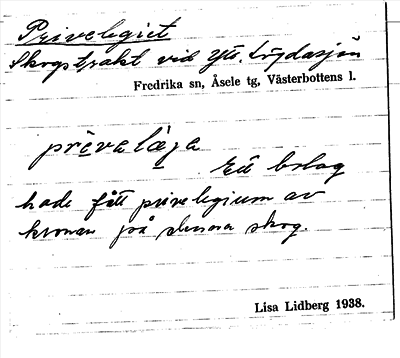 Privelegiet
Skogstrakt vid Ytt. Lögdasjön
Fredrika sn, Åsele tg, Västerbottens l.
privelæja
Ett bolag
hade fått privelegium av
kronan på denna skog.
Lisa Lidberg 1938.